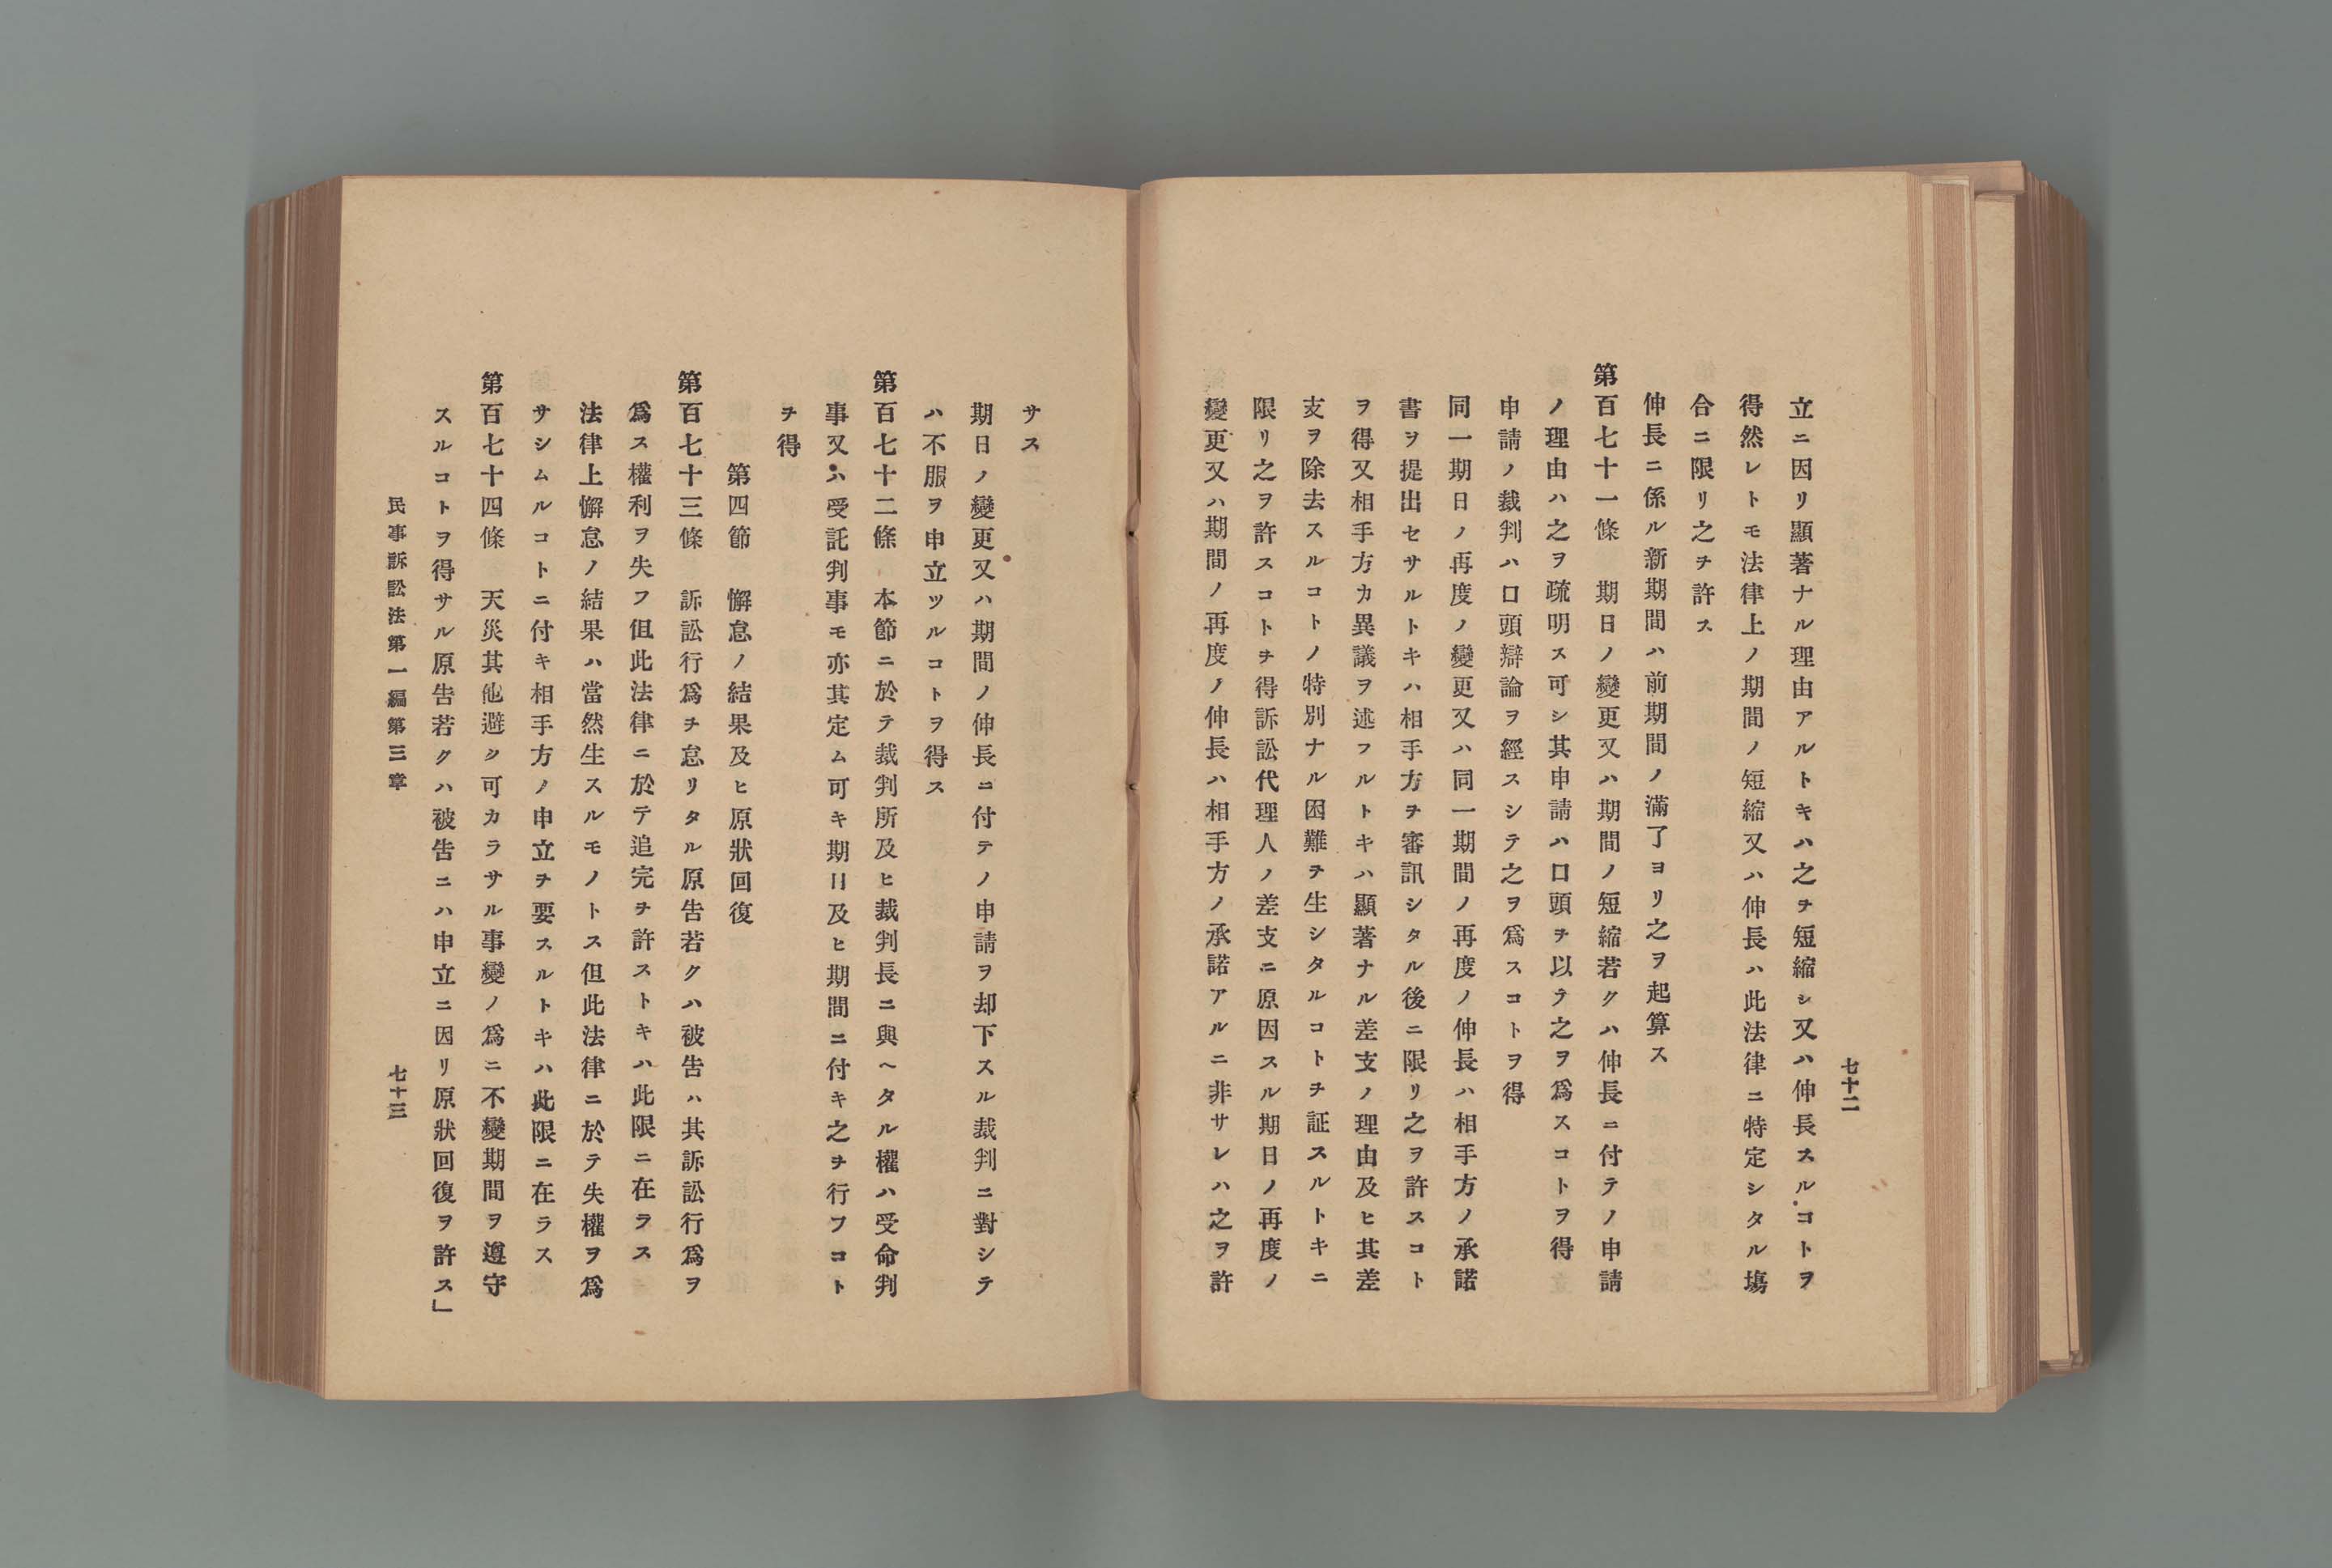 七十二
立ニ因リ顯著ナル理由アルトキハ之ヲ短縮シ又ハ伸長スルコトヲ
得然レトモ法律上ノ期間ノ短縮又ハ伸長ハ此法律ニ特定シタル塲
合ニ限リ之ヲ許ス
伸長ニ係ル新期間ハ前期間ノ滿了ヨリ之ヲ起算ス
第百七十一條　期日ノ變更又ハ期間ノ短縮若クハ伸長ニ付テノ申請
ノ理由ハ之ヲ疏明ス可シ其申請ハ口頭ヲ以テ之ヲ爲スコトヲ得
申請ノ裁判ハ口頭辯論ヲ經スシテ之ヲ爲スコトヲ得
同一期日ノ再度ノ變更又ハ同一期間ノ再度ノ伸長ハ相手方ノ承諾
書ヲ提出セサルトキハ相手方ヲ審訊シタル後ニ限リ之ヲ許スコト
ヲ得又相手方カ異議ヲ述フルトキハ顯著ナル差支ノ理由及ヒ其差
支ヲ除去スルコトノ特別ナル困難ヲ生シタルコトヲ証スルトキニ
限リ之ヲ許スコトヲ得訴訟代理人ノ差支ニ原因スル期日ノ再度ノ
變更又ハ期間ノ再度ノ伸長ハ相手方ノ承諾アルニ非サレハ之ヲ許
サス
期日ノ變更又ハ期間ノ伸長ニ付テノ申請ヲ却下スル裁判ニ對シテ
ハ不服ヲ申立ツルコトヲ得ス
第百七十二條　本節ニ於テ裁判所及ヒ裁判長ニ與ヘタル權ハ受命判
事又ハ受託判事モ亦其定ム可キ期日及ヒ期間ニ付キ之ヲ行フコト
ヲ得
第四節　懈怠ノ結果及ヒ原狀回復
第百七十三條　訴訟行爲ヲ怠リタル原告若クハ被告ハ其訴訟行爲ヲ
爲ス權利ヲ失フ但此法律ニ於テ追完ヲ許ストキハ此限ニ在ラス
法律上懈怠ノ結果ハ當然生スルモノトス但此法律ニ於テ失權ヲ爲
サシムルコトニ付キ相手方ノ申立ヲ要スルトキハ此限ニ在ラス
第百七十四條　天災其他避ク可カラサル事變ノ爲ニ不變期間ヲ遵守
スルコトヲ得サル原告若クハ被告ニハ申立ニ因リ原狀回復ヲ許ス」
民事訴訟法第一編第三章
七十三